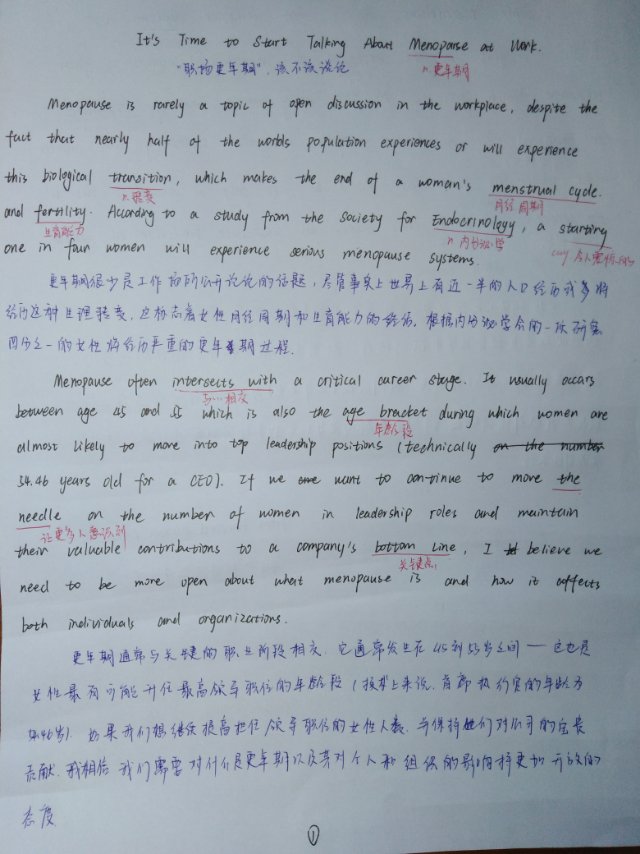 It's Time to Start Talking About Menopause at Work.
"职场更年期", 该不该谈论
n. 更年期
Menopause is rarely a topic of open discussion in the workplace, despite the
fact that nearly half of the worlds population experiences or will experience
this biological transition, which makes the end of a woman's menstrual cycle.
n. 转变
月经周期
and fertility. According to a study from the Society for Endocrinology, a starting
生育能力
n. 内分泌学
one in four women will experience serious menopause systems.
更年期很少是工作场所公开讨论的话题, 尽管事实上世界上有近一半的人口经历或多将
经历这种生理转变, 这标志着女性月经周期和生育能力的终结. 根据内分泌学会的一项研究
四分之一的女性将经历严重的更年期过程.
Menopause often intersects with a critical career stage. It usually occurs
与...相交
between age 45 and 55 which is also the age bracket during which women are
年龄段
almost likely to more into top leadership positions (technically
54.46 years old for a CEO). If we want to continue to more the
needle on the number of women in leadership roles and maintain
让更多人意识到
their valuable contributions to a company's bottom line, I believe we
关键点
need to be more open about what menopause is and how it affects
both individuals and organizations.
更年期通常与关键的职业阶段相交. 它通常发生在45到55岁之间——这也是
女性最有可能升任最高领导职位的年龄段 (技术上来说, 首席执行官的年龄为
54.46岁). 如果我们想继续提高担任领导职位的女性人数, 并保持她们对公司的宝长
贡献, 我相信我们需要对什么是更年期以及其对个人和组织的影响持更加开放的
态度
1